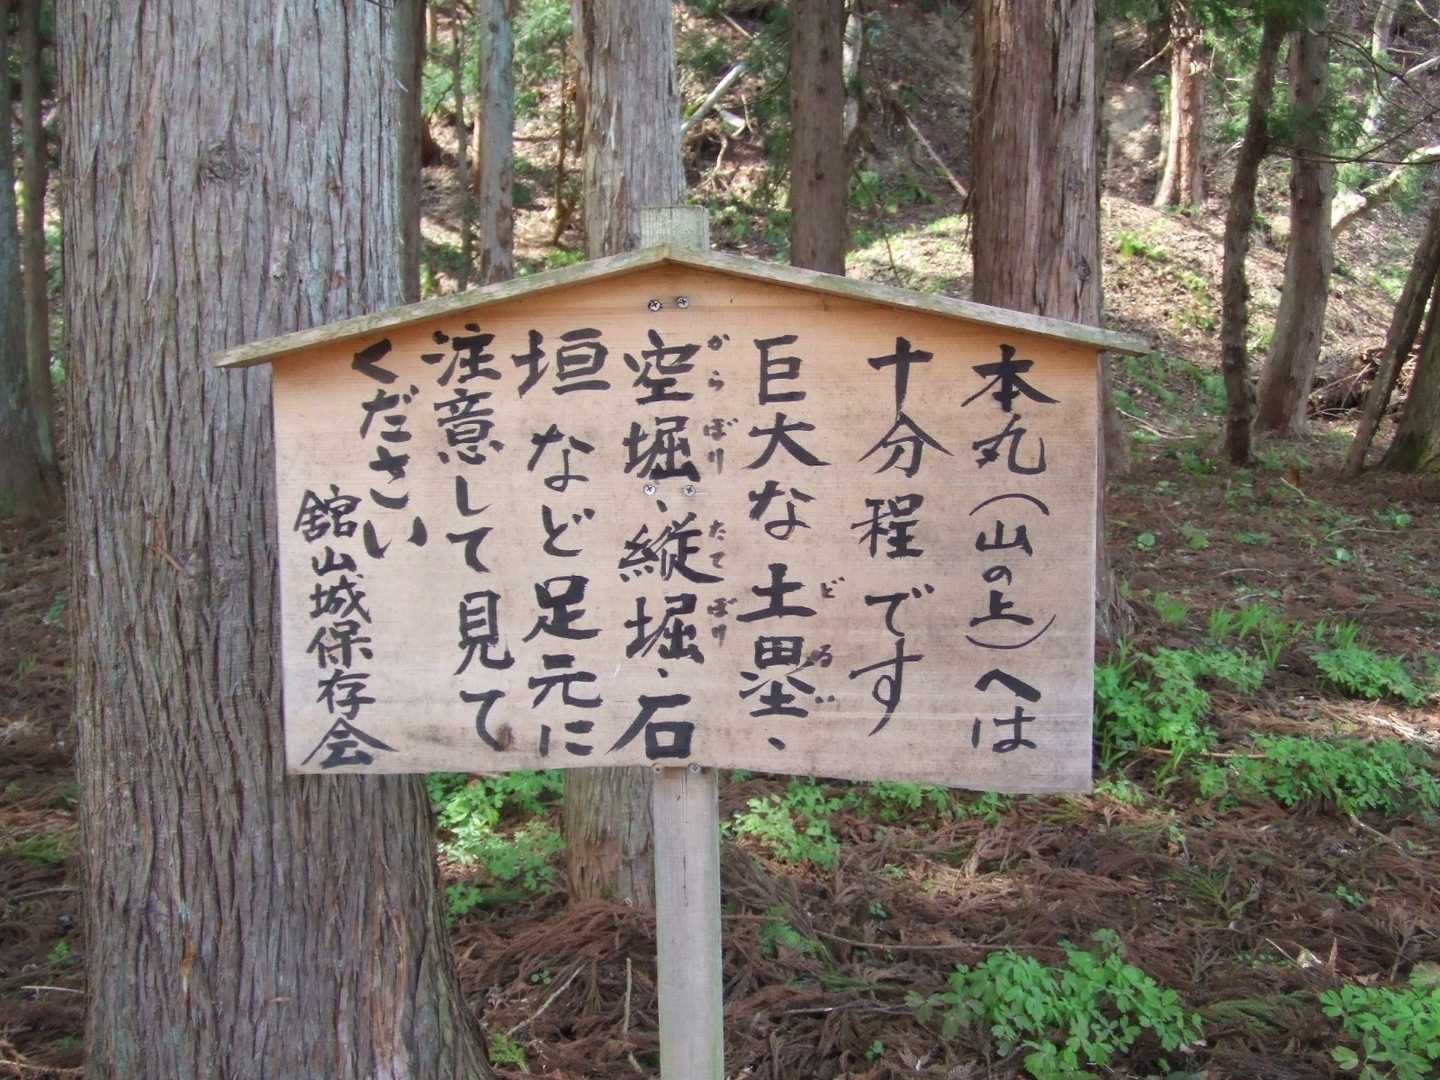 本丸(山の上)へは
十分程です
巨大な土塁、
どるい
空堀、縦堀、石
からぼり たてぼり
垣など足元に
注意して見て
ください
舘山城保存会